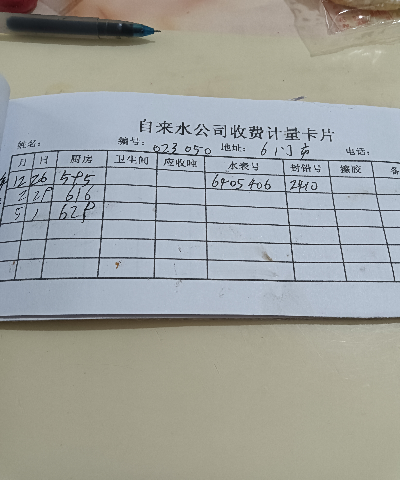 自来水公司收费计量卡片
姓名： 编号：023050 地址：6门市 电话：
月 日 厨房 卫生间 应收吨 水表号 封铅号 橡胶 备
12 26 595 6405406 2410
2 29 616
5 1 629